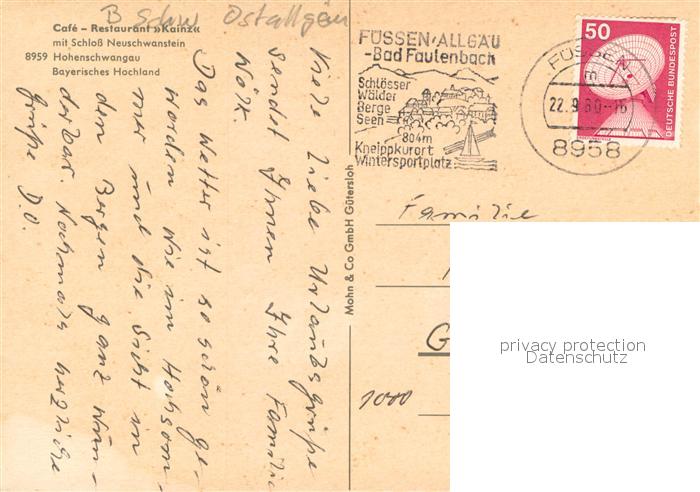 B Schw Ostallgäu
Café – Restaurant »Kainz«
mit Schloß Neuschwanstein
8959 Hohenschwangau
Bayerisches Hochland
Viele liebe Urlaubsgrüße
sendet Ihnen Ihre Familie
Das Wetter ist so schön ge-
worden wie im Hochsom-
mer und die Sicht in
den Bergen ganz wun-
derbar. Nochmals herzliche
Grüße D.O.
Mohn & Co GmbH Gütersloh
FÜSSEN·ALLGÄU
-Bad Faulenbach
Schlösser
Wälder
Berge
Seen
804m
Kneippkurort
Wintersportplatz
FÜSSEN
22.9.80-16
8958
50
DEUTSCHE BUNDESPOST
Familie
G
1000
privacy protection
Datenschutz